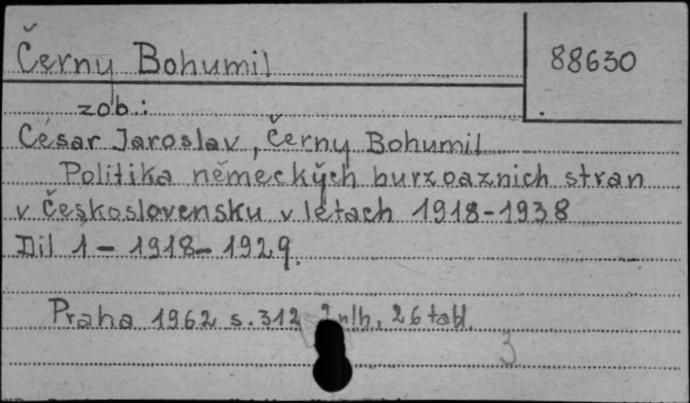 Černy Bohumil
88630
zob.:
César Jaroslav, Černy Bohumil
Politika německých burzoaznich stran
v Československu v létach 1918-1938
Dil 1 - 1918-1929.
Praha 1962 s. 312 26 tabl.
3